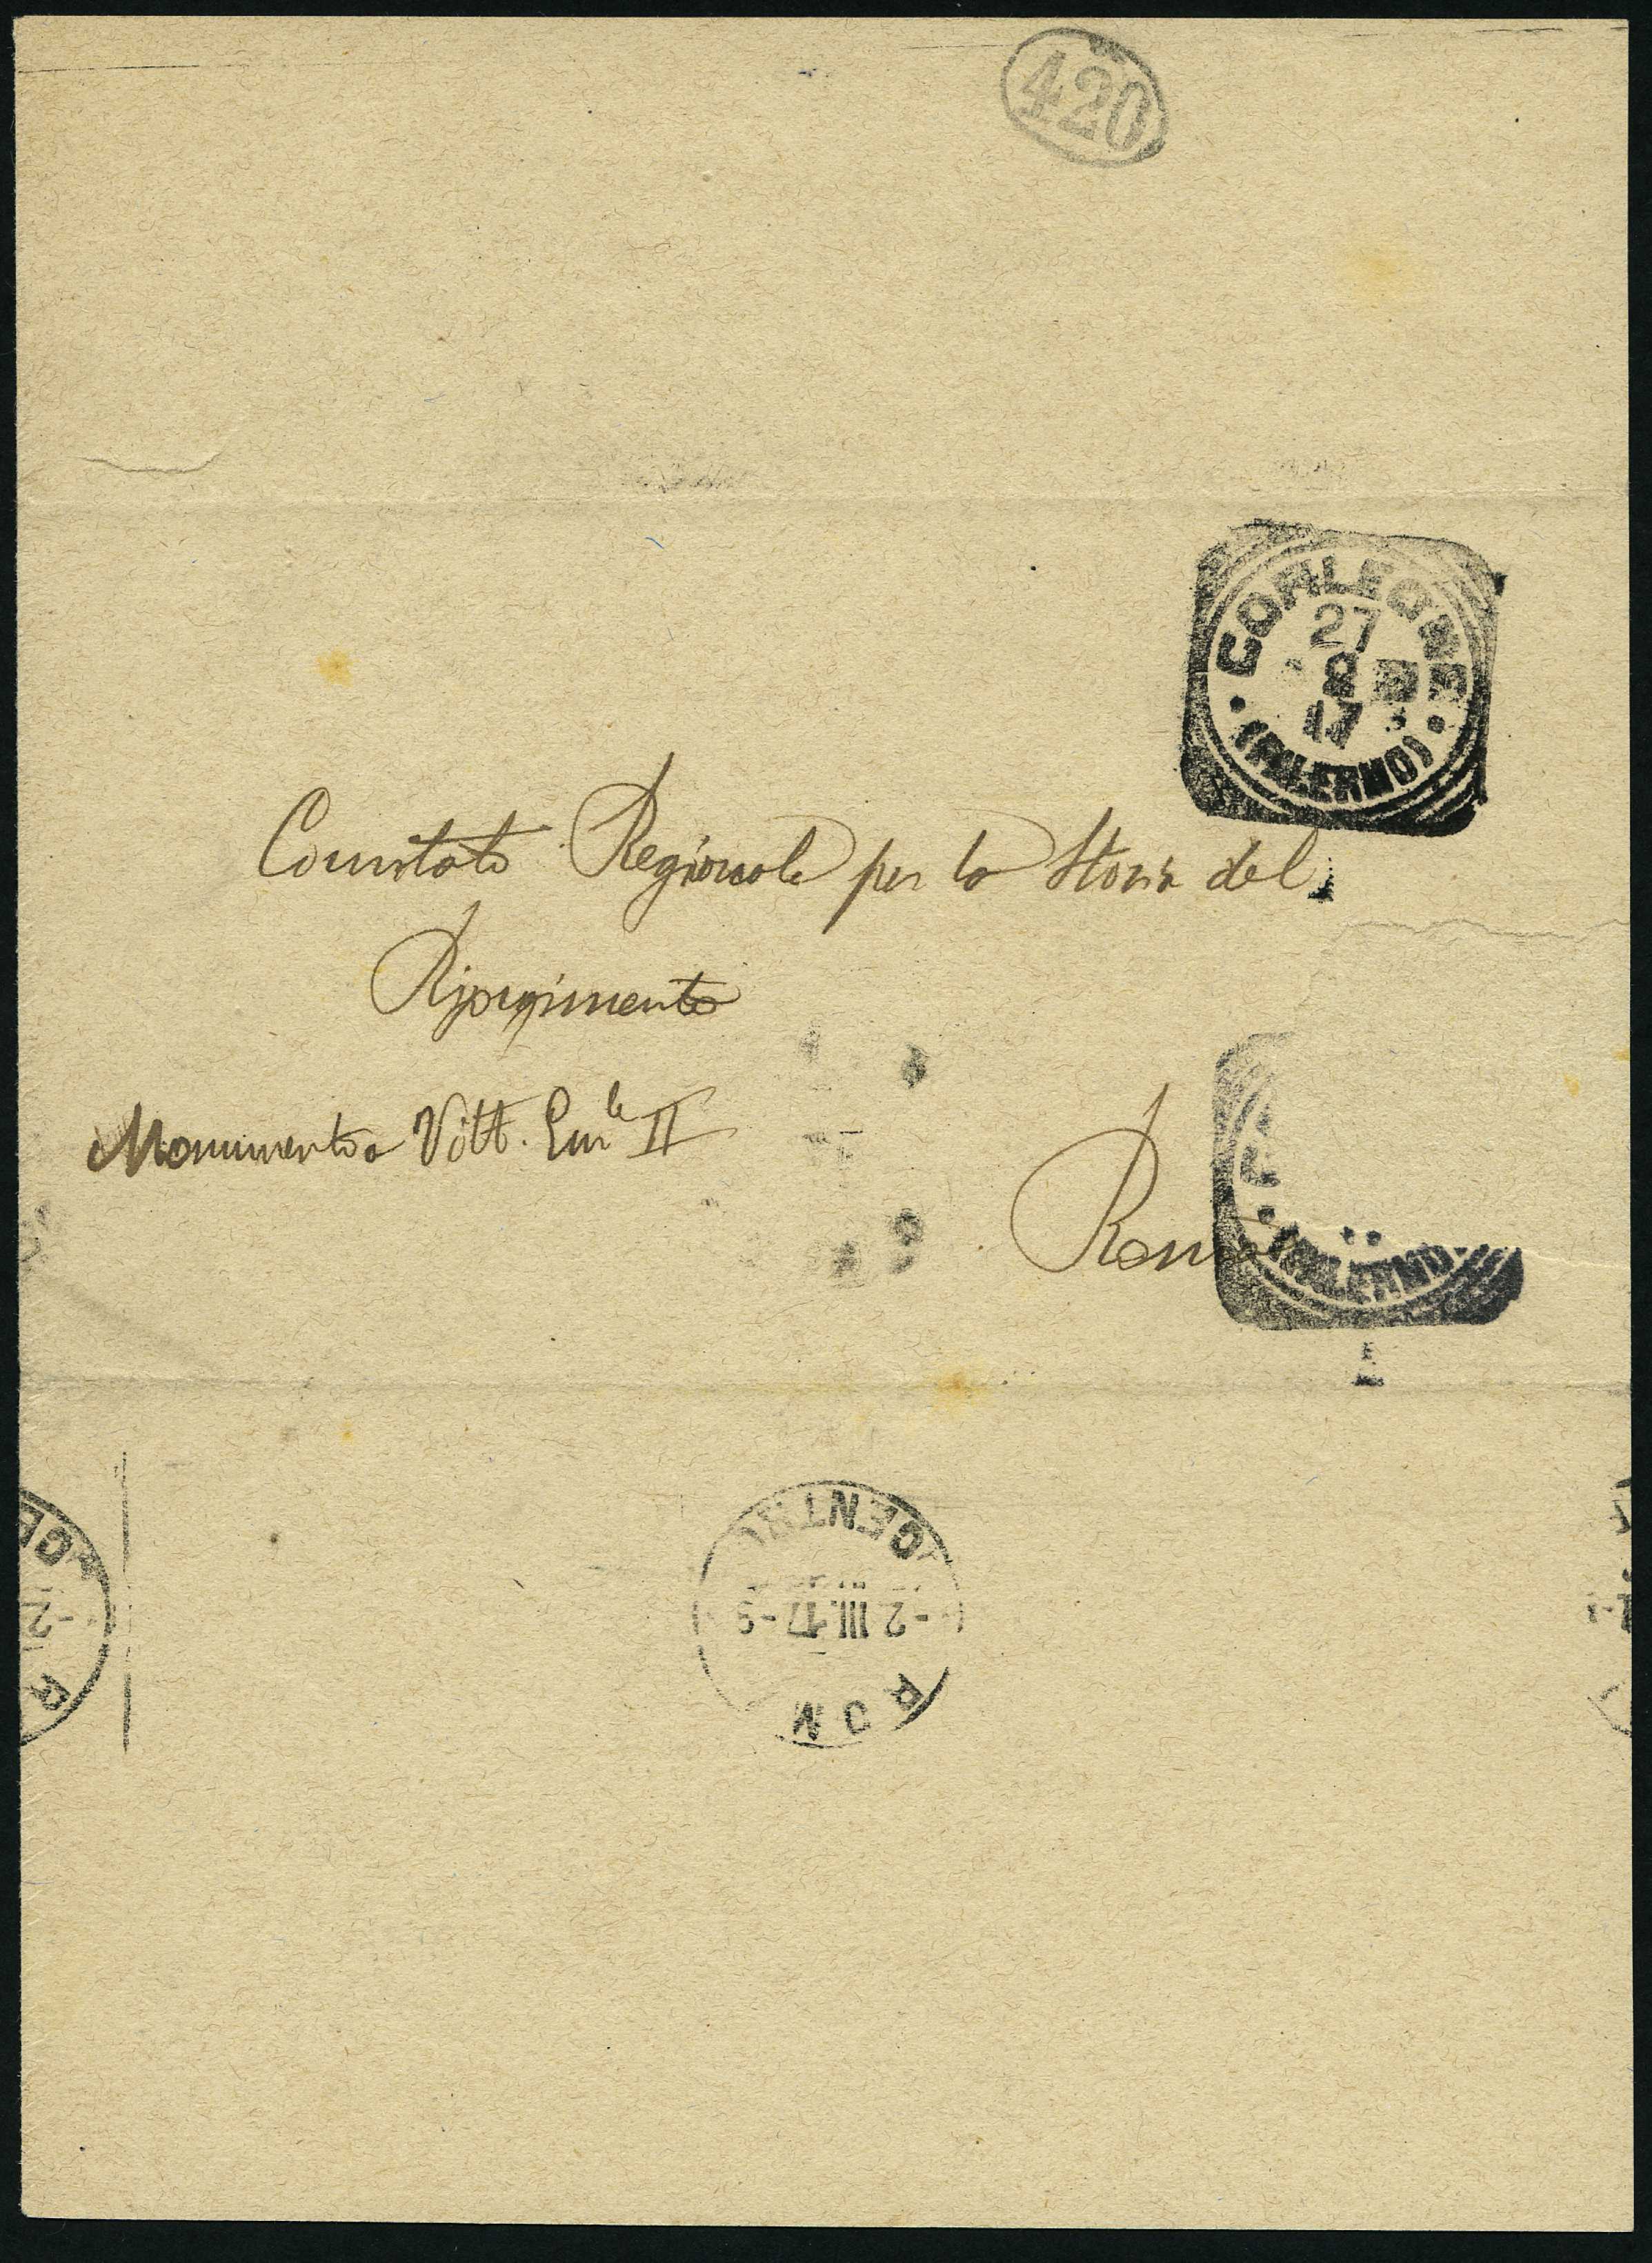 420
CORLEONE
27
2
17
(PALERMO)
Comitato Regionale per la Storia del
Risorgimento
Monumento a Vitt. Em.le II
Roma
(PALERMO)
CENTR
-2 III.17-9
ROM
CE
-2
R